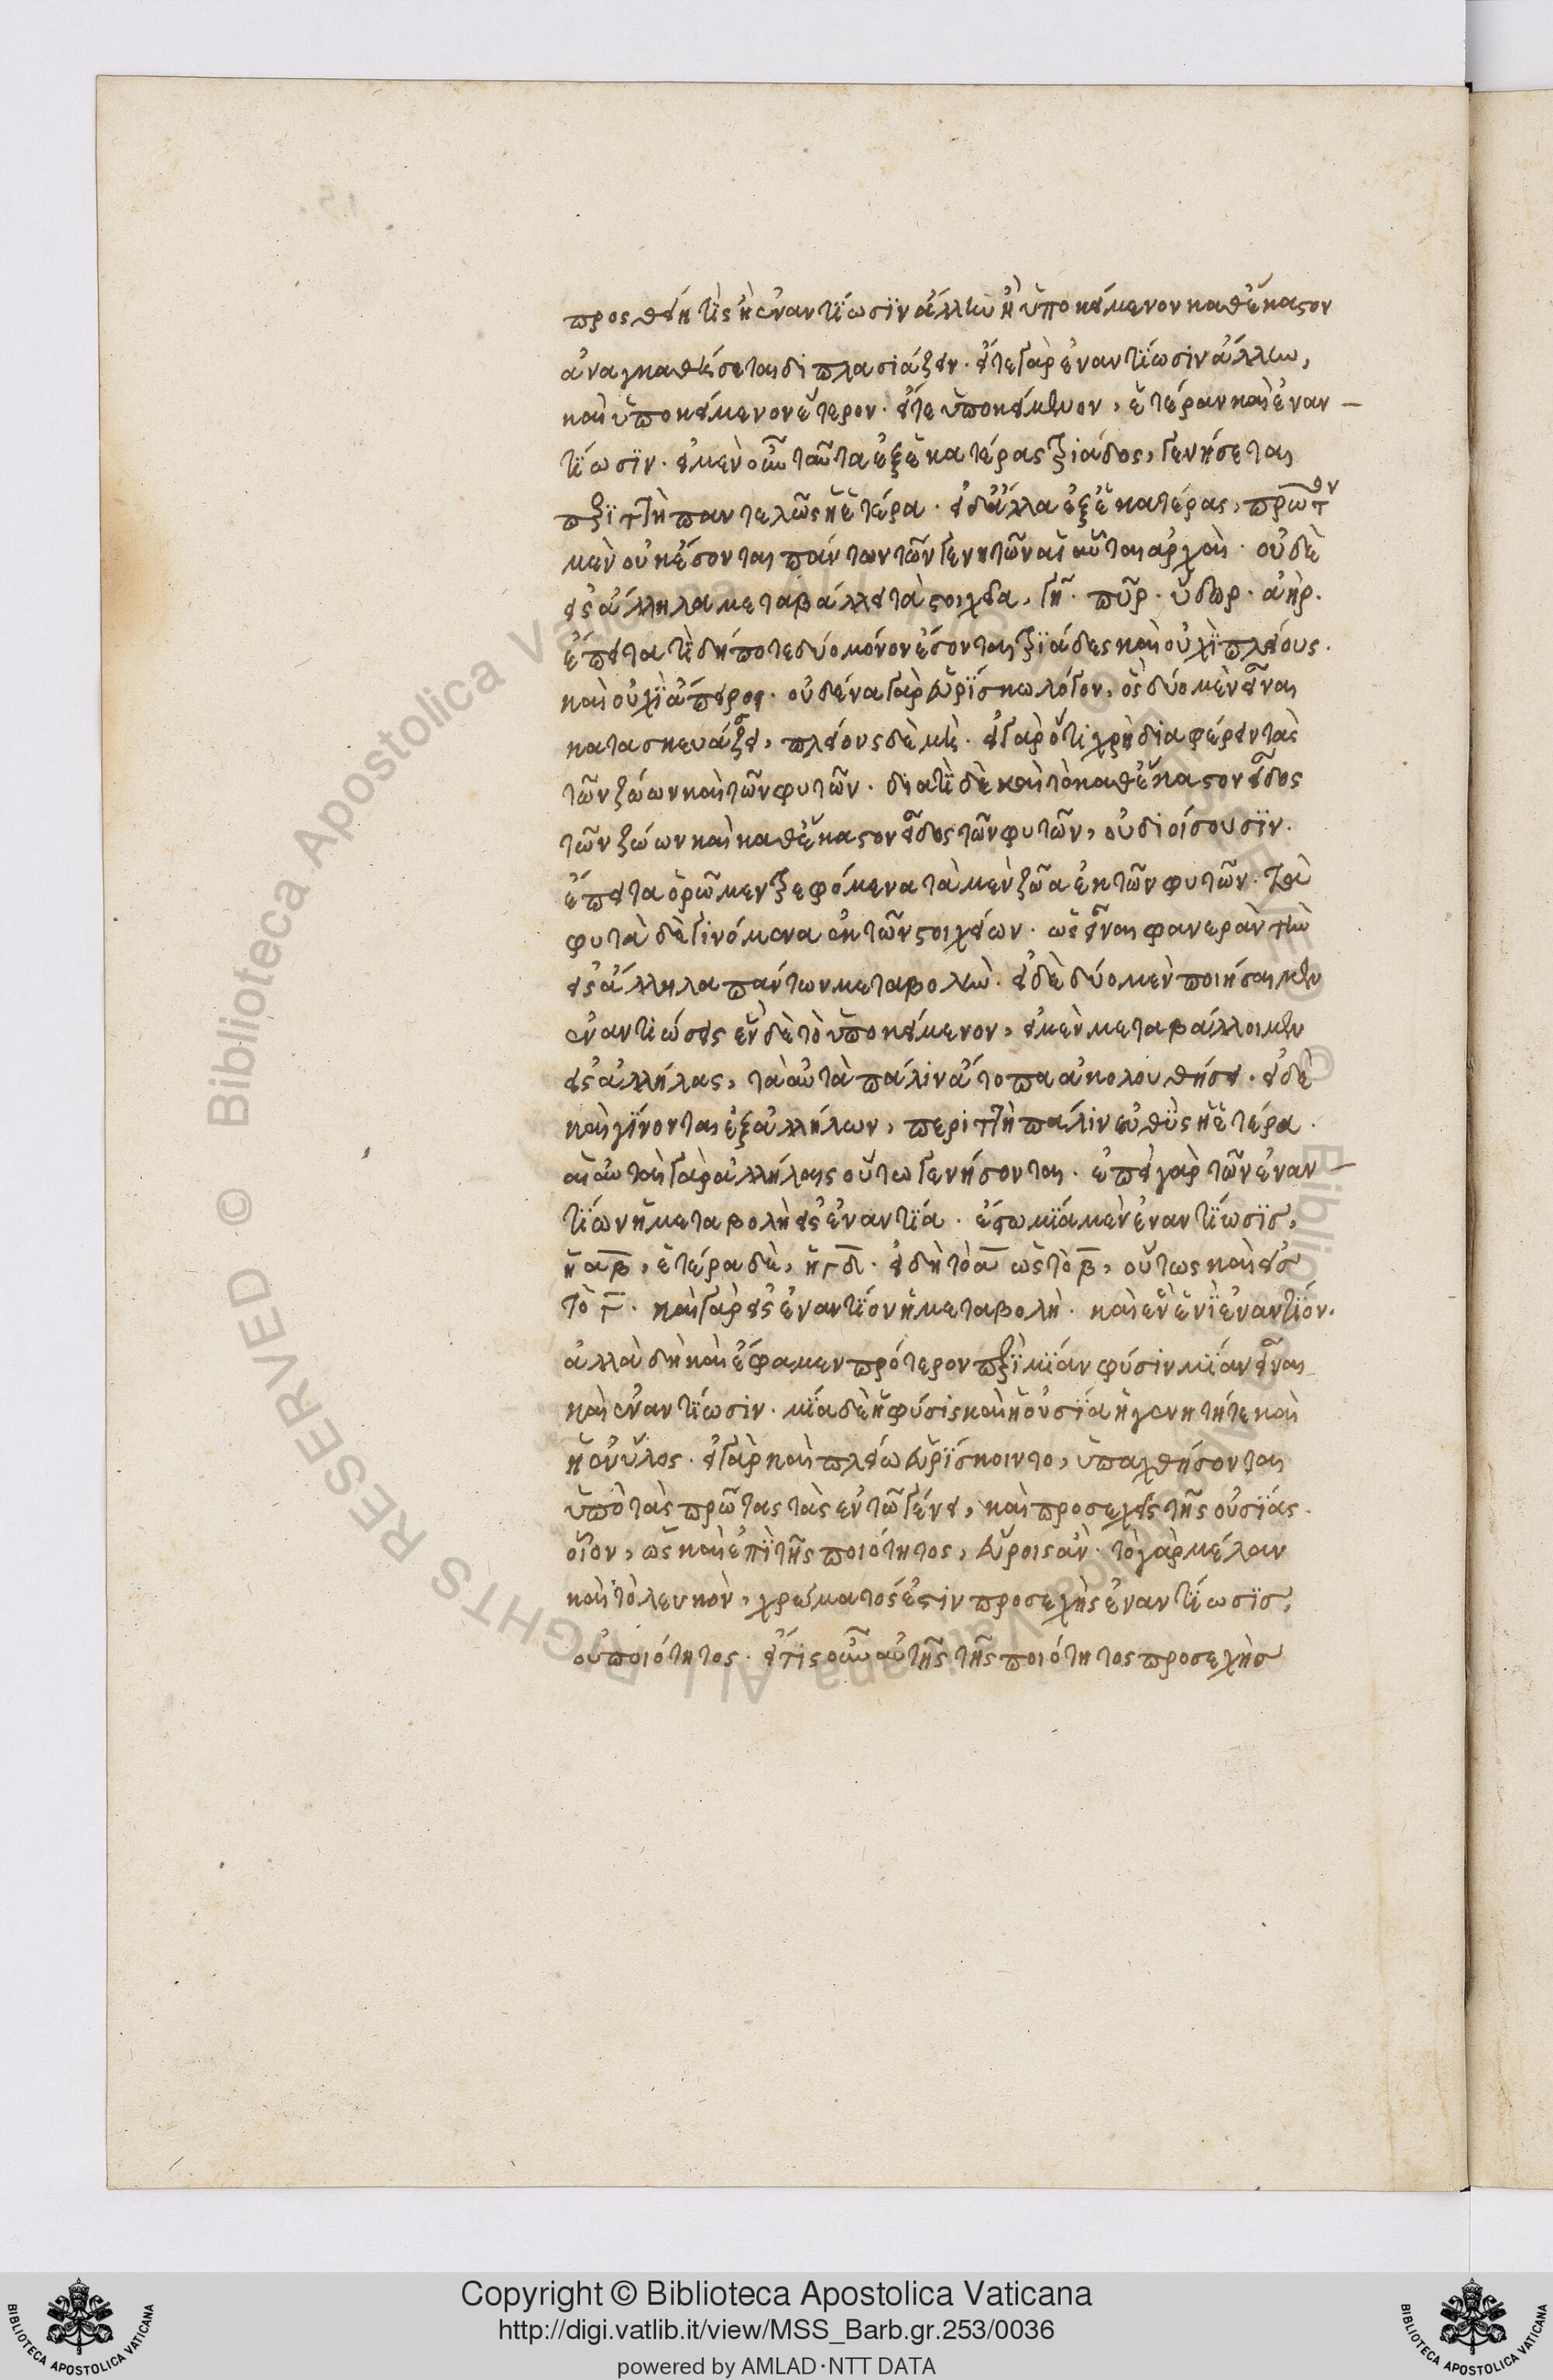 προσθείη τὶς ἢ ἐναντίωσϊν ἄλλην ἢ ὑποκείμενον καθ' ἕκαστον
ἀναγκασθήσεται διπλασιάζειν. εἴτε γὰρ ἐναντίωσιν ἄλλην,
καὶ ὑποκείμενον ἕτερον. εἴτε ὑποκείμενον, ἑτέραν καὶ ἐναν-
τίωσϊν. εἰ μὲν οὖν ταῦτα ἐξ ἑκατέρας τριάδος, γενήσεται
περϊττὴ παντελῶς ἡ ἑτέρα. εἰ δ' ἄλλα ἐξ ἑκατέρας, πρῶτον
μὲν οὐκ ἔσονται πάντων τῶν γενητῶν αἱ αὗται ἀρχαὶ. οὐδὲ
εἰς ἄλληλα μεταβάλλει τὰ στοιχεῖα, γῆ. πῦρ. ὕδωρ. ἀὴρ.
ἔπειτα τὶ δήποτε δύο μόνον ἔσονται τρϊάδες καὶ οὐχὶ πλείους.
καὶ οὐχὶ ἄπειροι. οὐδένα γὰρ εὑρϊσκω λόγον, ὃς δύο μὲν εἶναι
κατασκευάζει, πλείους δὲ μὴ. εἰ γὰρ ὅτι χρὴ διαφέρειν τὰς
τῶν ζώων καὶ τῶν φυτῶν. διατὶ δὲ καὶ τὸ καθ' ἕκαστον εἶδος
τῶν ζώων καὶ καθ' ἕκαστον εἶδος τῶν φυτῶν, οὐ διοίσουσϊν.
ἔπειτα ὁρῶμεν τρεφόμενα τὰ μὲν ζῶα ἐκ τῶν φυτῶν. τὰ
φυτὰ δὲ γινόμενα ἐκ τῶν στοιχείων. ὡς εἶναι φανερὰν τὴν
εἰς ἄλληλα πάντων μεταβολὴν. εἰ δὲ δύο μὲν ποιήσαιμεν
ἐναντιώσεις ἓν δὲ τὸ ὑποκείμενον, εἰ μὲν μεταβάλλοιμεν
εἰς ἀλλήλας, τὰ αὐτὰ πάλιν ἄτοπα ἀκολουθήσει. εἰ δὲ
καὶ γϊνονται ἐξ ἀλλήλων, περιττὴ πάλιν εὐθὺς ἡ ἑτέρα.
αἱ αὐταὶ γὰρ ἀλλήλαις οὕτω γενήσονται. ἐπεὶ γὰρ τῶν ἐναν-
τϊων ἡ μεταβολὴ εἰς ἐναντϊα. ἔστω μϊα μὲν ἐναντίωσϊς,
ἡ α̅β̅, ἑτέρα δὲ, ἡ γ̅δ̅. εἰ δὴ τὸ α̅ ὡς τὸ β̅, οὕτως καὶ εἰς
τὸ γ̅. καὶ γὰρ εἰς ἐναντίον ἡ μεταβολὴ. καὶ ἓν ἑνὶ ἐναντϊον.
ἀλλὰ δὴ καὶ ἔφαμεν πρότερον περὶ μϊαν φύσιν μϊαν εἶναι
καὶ ἐναντϊωσιν. μϊα δὲ ἡ φύσις καὶ ἡ οὐσϊα ἡ γενητήτε καὶ
ἡ ἔνυλος. εἰ γὰρ καὶ πλείω εὑρϊσκοιντο, ὑπαχθήσονται
ὑπὸ τὰς πρώτας τὰς ἐν τῶ γένει, καὶ προσεχεῖς τῆς οὐσϊας.
οἷον, ὡς καὶ ἐπὶ τῆς ποιότητος, εὕροις ἂν. τὸ γὰρ μέλαν
καὶ τὸ λευκὸν, χρώματός ἐστιν προσεχὴς ἐναντίωσϊς,
οὐ ποιότητος. εἴ τις οὖν αὐτῆς τῆς ποιότητος προσεχὴς
Copyright © Biblioteca Apostolica Vaticana
http://digi.vatlib.it/view/MSS_Barb.gr.253/0036
powered by AMLAD·NTT DATA